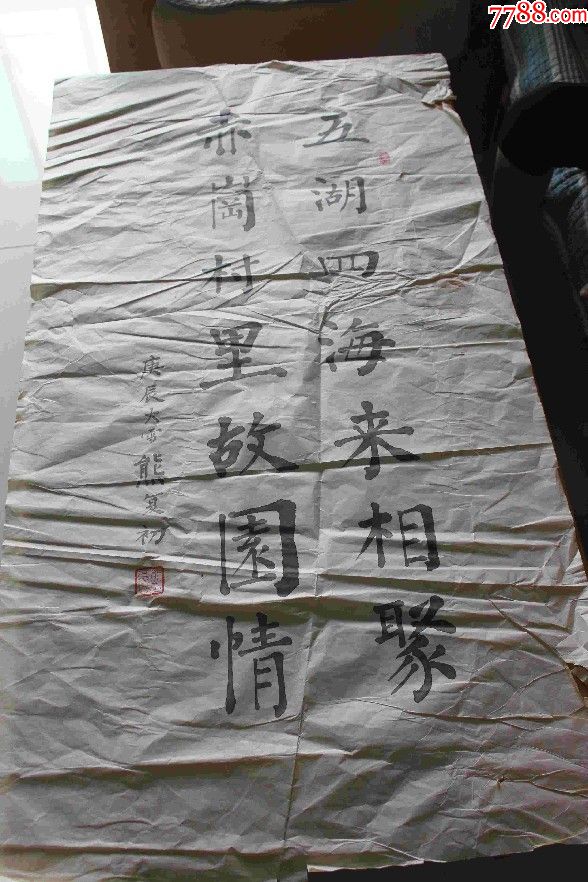 五湖四海来相聚
赤崗村里故園情
庚辰大雪熊复初
7788.com